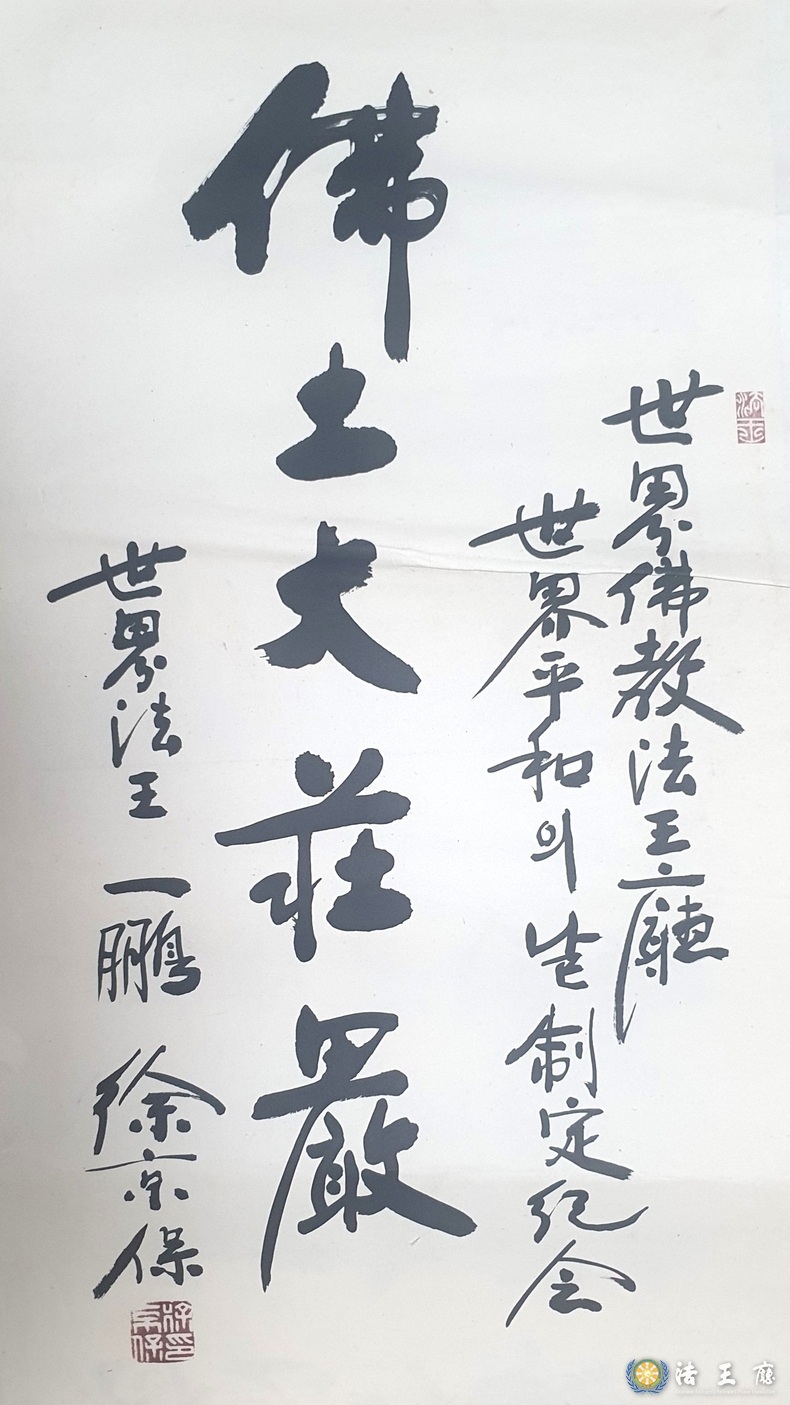 世界佛教法王廳
世界平和의 날 制定紀念
佛土大莊嚴
世界法王 一鵬 徐京保
法王廳